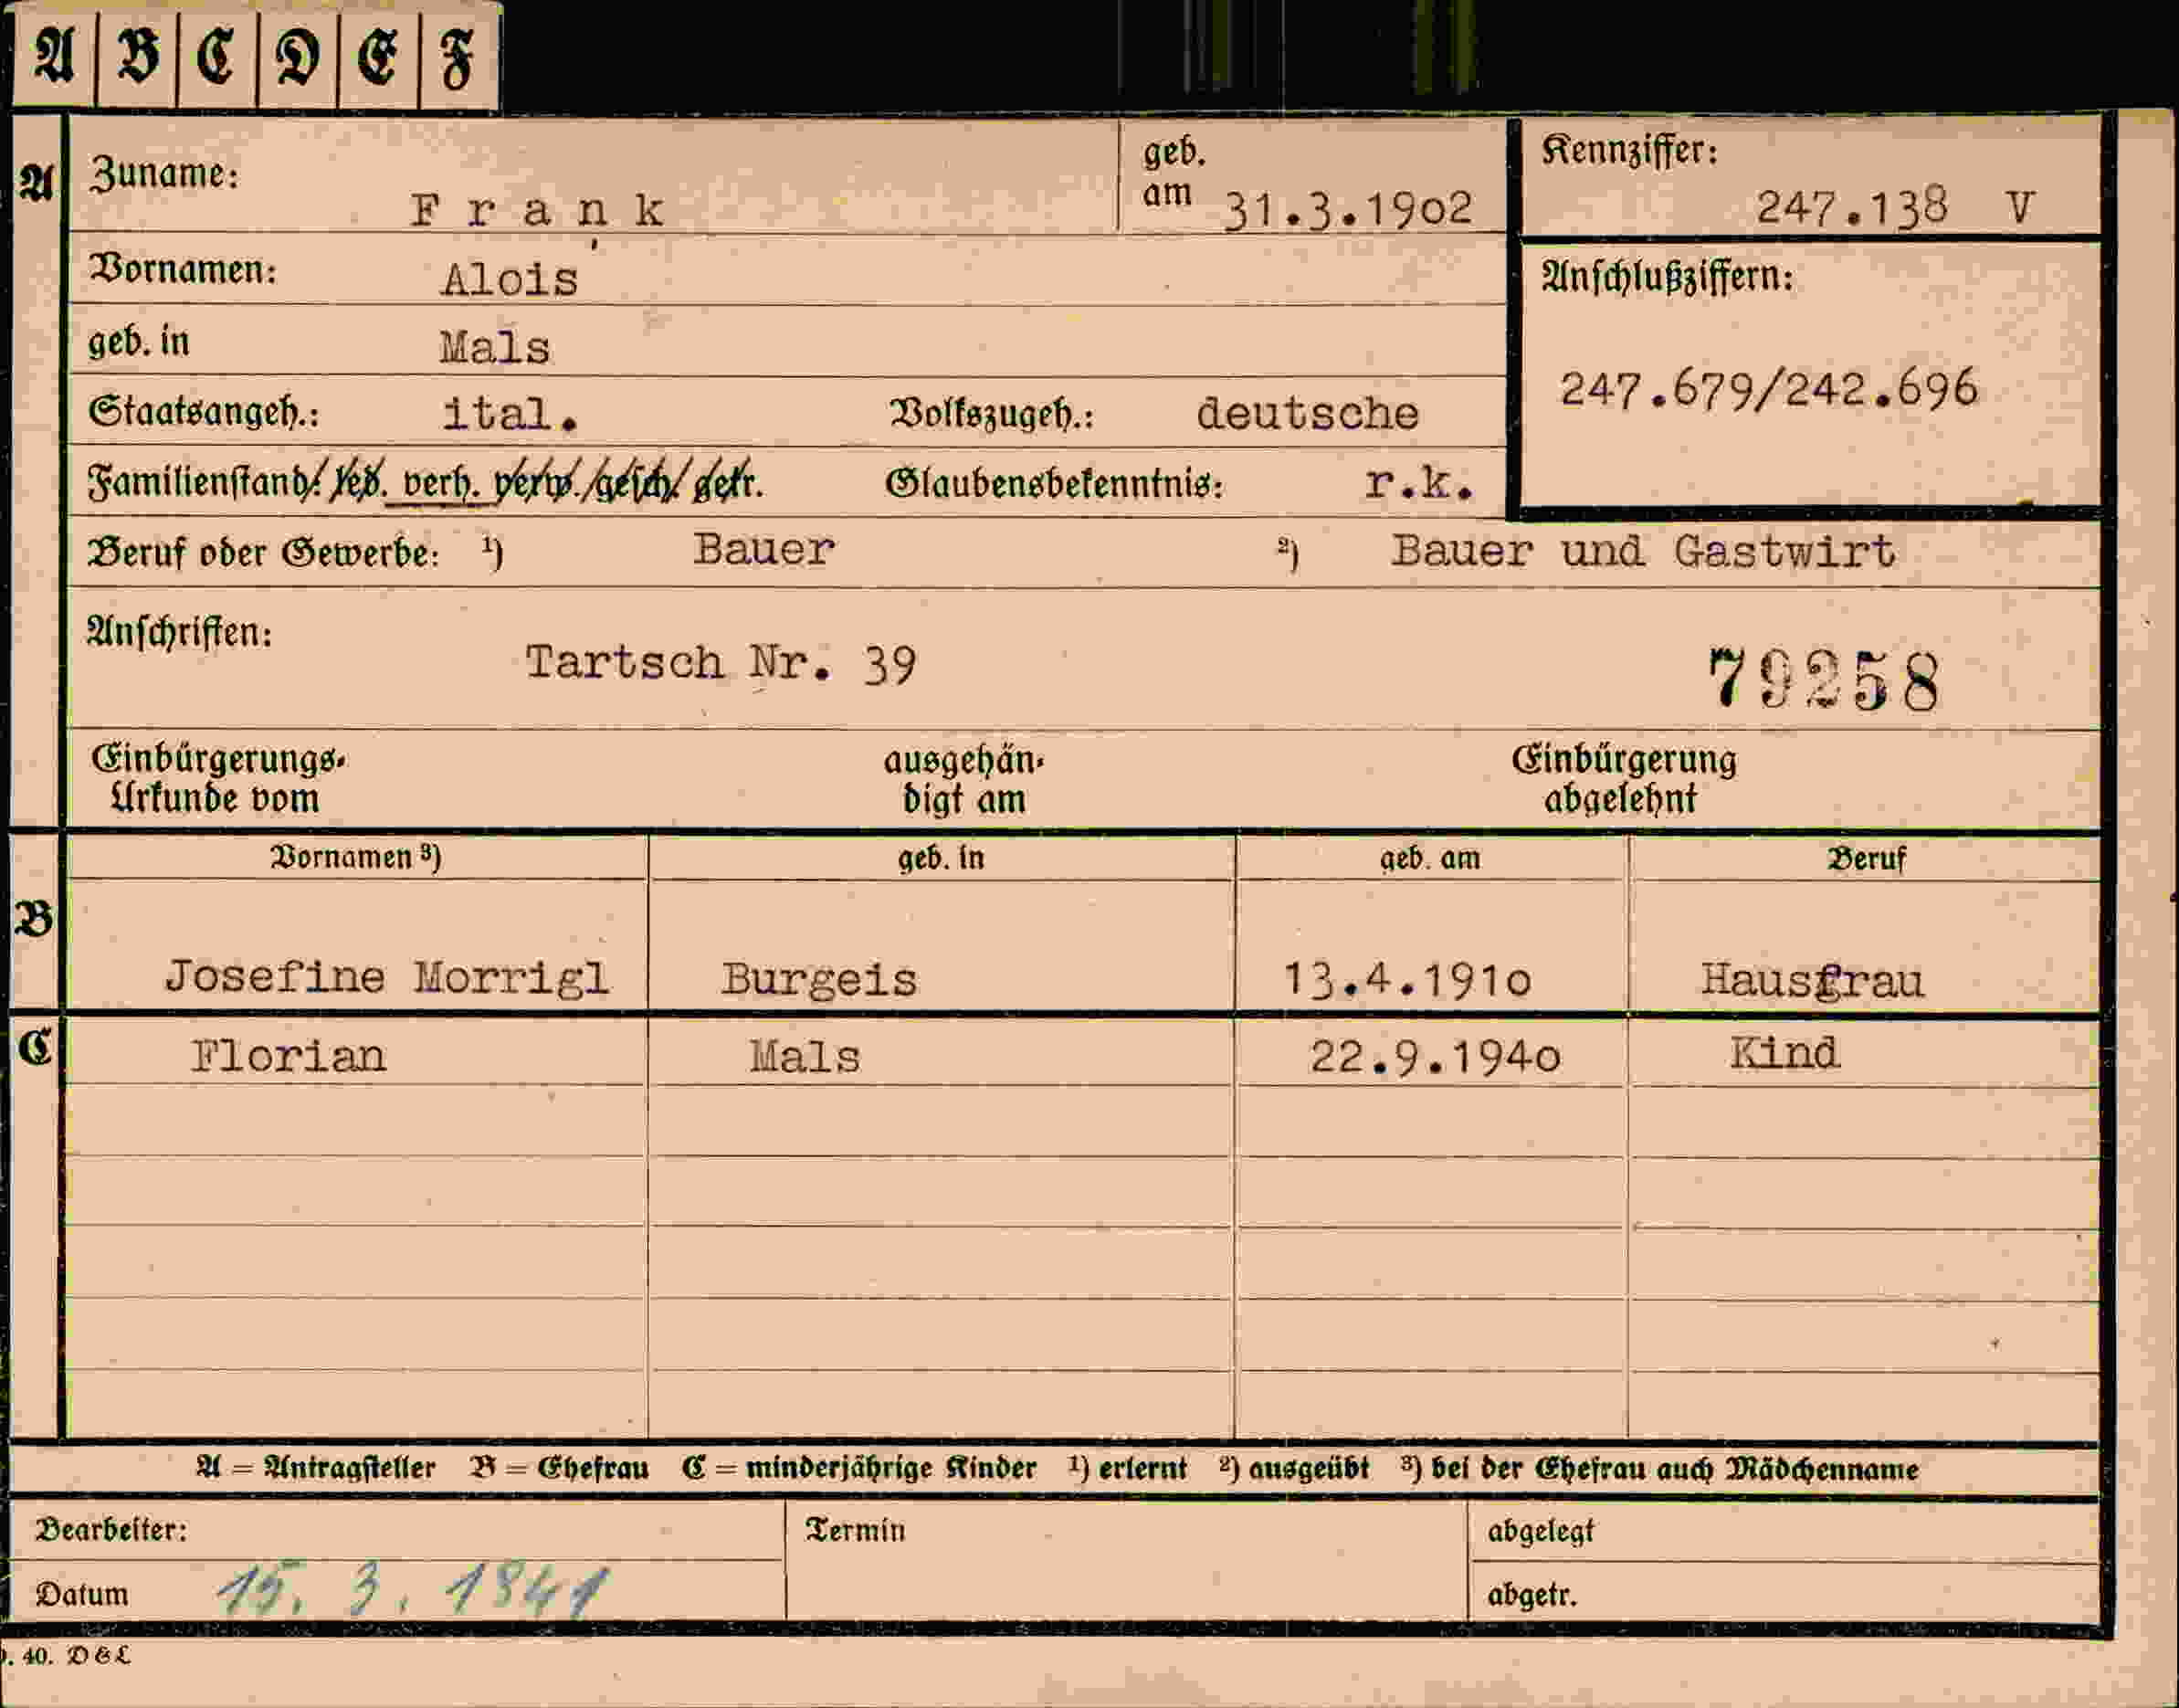 A B C D E F
A Zuname: Frank geb. am 31.3.1902 Kennziffer: 247.138 V
Vornamen: Alois Anschlußziffern:
geb. in Mals
247.679/242.696
Staatsangeh.: ital. Volkszugeh.: deutsche
Familienstand: led. verh. verw. gesch. getr. Glaubensbekenntnis: r.k.
Beruf oder Gewerbe: ¹) Bauer ²) Bauer und Gastwirt
Anschriften: Tartsch Nr. 39 79258
Einbürgerungs- ausgehän- Einbürgerung
Urkunde vom digt am abgelehnt
Vornamen ³) geb. in geb. am Beruf
B
Josefine Morrigl Burgeis 13.4.1910 Hausfrau
C Florian Mals 22.9.1940 Kind
A = Antragsteller B = Ehefrau C = minderjährige Kinder ¹) erlernt ²) ausgeübt ³) bei der Ehefrau auch Mädchenname
Bearbeiter: Termin abgelegt
Datum 15. 3. 1941 abgetr.
. 40. D & L